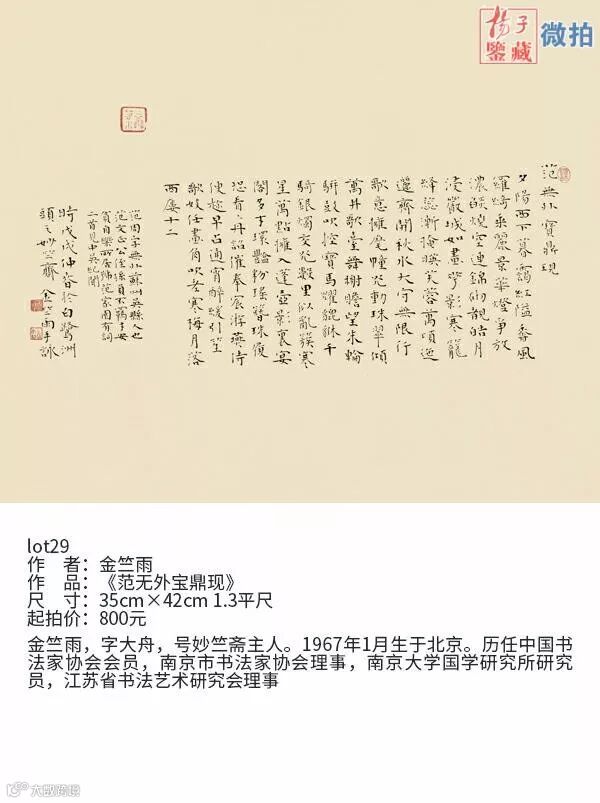 揚子
鑒藏
微拍
范無外寶鼎現
夕陽西下暮靄紅隘香風
羅綺乘麗景華燈爭放
濃燄燒空連錦砌覩皓月
浸嚴城如畫花影寒籠
絳蕊漸掩暎芙蓉萬頃迤
邐齊開秋水太守無限行
歌意擁麾幢光動珠翠傾
萬井歌臺舞榭瞻望朱輪
駢鼓吹控寶馬耀貔貅千
騎銀燭交光數里似亂簇寒
星萬點擁入蓬壺影裏宴
閣多才環艷粉瑤簪珠履
恐看丹詔催奉宸遊燕侍
便趁早占通宵醉緩引笙
歌妓任畫角吹老寒梅月落
西廔十二
范周字無外蘇州吳縣人也
范文正公侄孫負不羈
二首見中吳紀聞
時戊戌仲春於白鷺洲
頭之妙竺齋金竺雨手詠
lot29
作 者：金竺雨
作 品：《范无外宝鼎现》
尺 寸：35cm×42cm 1.3平尺
起拍价：800元
金竺雨，字大舟，号妙竺斋主人。1967年1月生于北京。历任中国书
法家协会会员，南京市书法家协会理事，南京大学国学研究所研究
员，江苏省书法艺术研究会理事